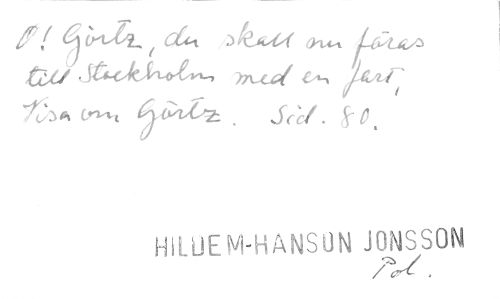 O! Görtz, du skall nu föras
till Stockholm med en fart,
Visa om Görtz. Sid. 80.
HILDEM-HANSON JONSSON
Pol.